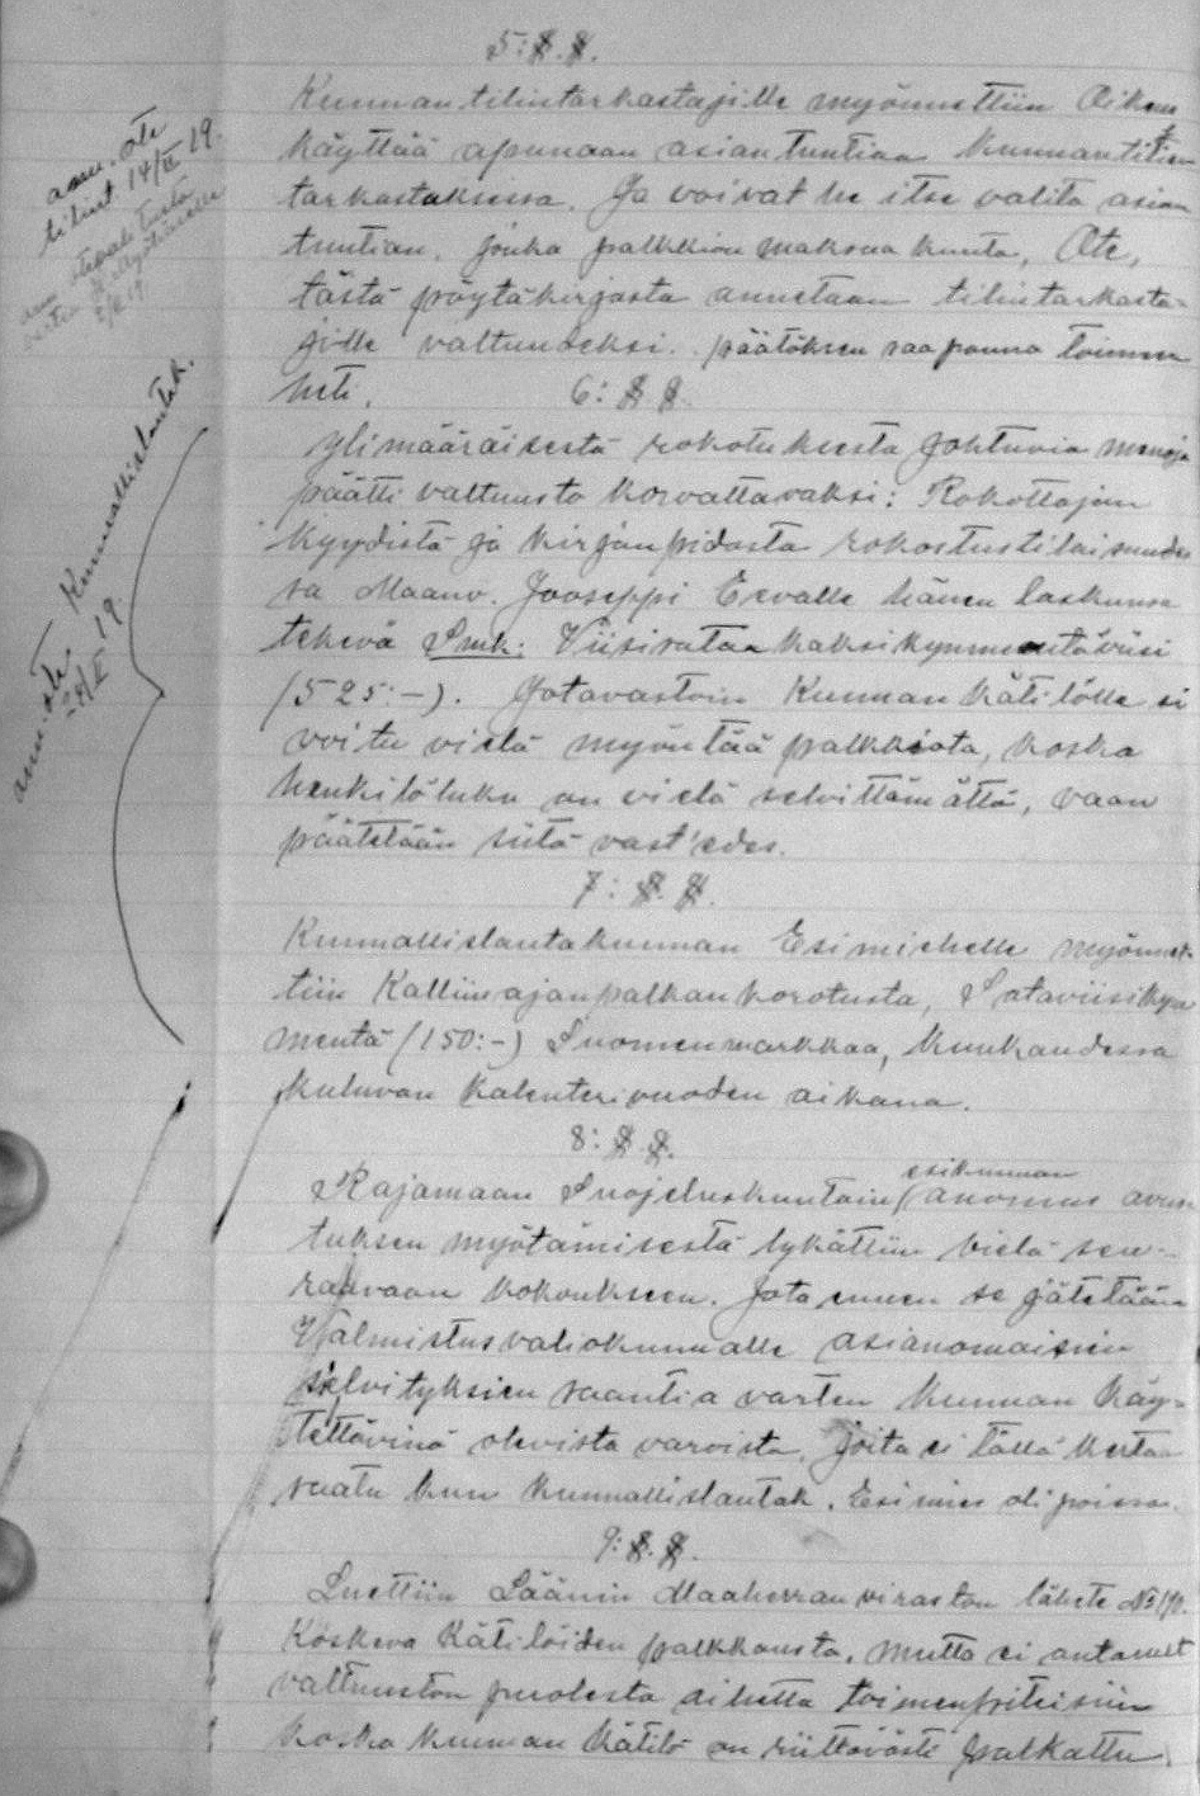 5:§.§.
Kunnan tilintarkastajille myönnettiin Oikeus
käyttää apunaan asiantuntiaa kunnan tilien
tarkastuksessa. Ja voivat he itse valita asian
tuntian, jonka palkkion maksaa kunta, Ote,
tästä pöytäkirjasta annetaan tilintarkasta-
jille valtuudeksi. päätöksen saa panna toimeen
heti.
6: § §.
ylimääräisestä rokotuksesta johtuvia menoja
päätti valtuusto korvattavaksi: Rokottajan
kyydistä ja kirjanpidosta rokostustilaisuudes
sa Maanv. Jooseppi Eevalle hänen laskunsa
tekevä Smk: Viisisataa kaksikymmentäviisi
(525:-). Jotavastoin Kunnan kätilölle ei
voitu vielä myöntää palkkiota, koska
henkilöluku on vielä selvittämättä, vaan
päätetään siitä vast'edes.
7: §. §.
Kunnallislautakunnan Esimiehelle myönnet-
tiin Kalliinajanpalkankorotusta, Sataviisikym
mentä (150:-) Suomenmarkkaa, kuukaudessa
kuluvan kalenterivuoden aikana.
8: § §.
esikunnan
Rajamaan Suojeluskuntain anomus avus
tuksen myötämisestä lykättiin vielä seu-
raavaan kokoukseen. Jota ennen se jätetään
Valmistusvaliokunnalle asianomaisien
selvityksien saantia varten kunnan käy-
tettävinä olevista varoista, joita ei tällä kertaa
saatu kun kunnallislautak. Esimies oli poissa.
9: §. §.
Luettiin Läänin Maaherran viraston lähete №
Koskeva Kätilöiden palkkausta, mutta ei antanut
valtuuston puolesta aihetta toimenpiteisiin
koska kunnan kätilö on riittävästi palkattu.
ann. ote
tilint. 14/II 19.
ann. ote Kunnallislautak.
24/II 19.